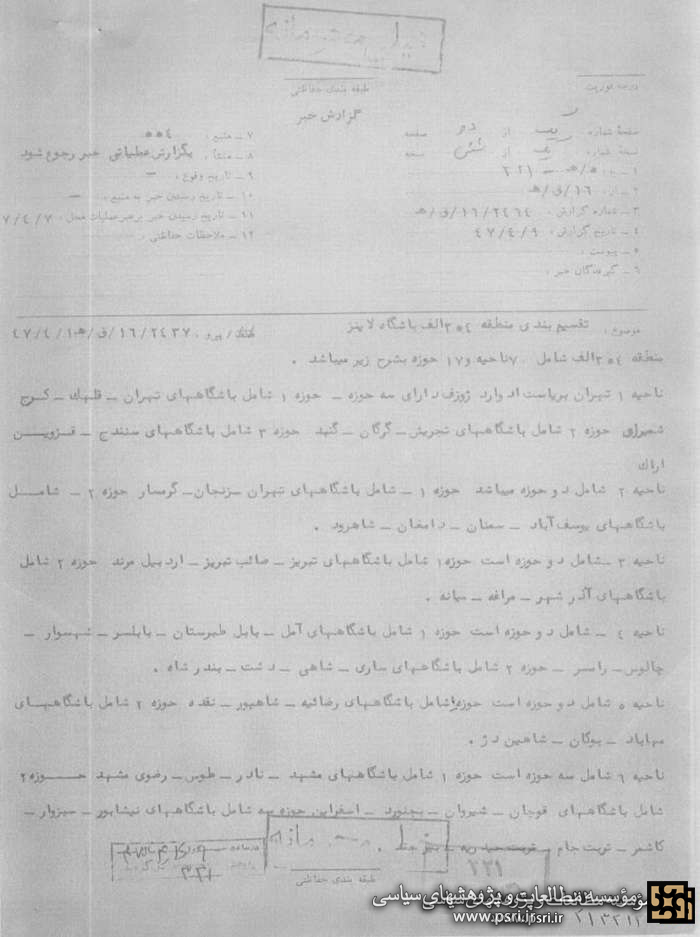 خیلی محرمانه
درجه فوریت
طبقه بندی حفاظتی
گزارش خبر
صفحه شماره یک از دو صفحه
نسخه شماره از شش نسخه
۱ - به : ۲۲۱
۲ - از : ۱۶/ق/هـ
۳ - شماره گزارش : ۱۶/۲۴۶۴/ق/هـ
۴ - تاریخ گزارش : ۴۷/۴/۹
۵ - پیوست :
۶ - گیرندگان خبر :
۷ - منبع :
۸ - منشأ : بگزارش عملیاتی خبر رجوع شود
۹ - تاریخ وقوع : -
۱۰ - تاریخ رسیدن خبر به منبع : -
۱۱ - تاریخ رسیدن خبر برهبر عملیات محل : ۷/۴/۷
۱۲ - ملاحظات حفاظتی :
موضوع : تقسیم بندی منطقه ۳۰۴ الف باشگاه لاینز
پیرو : ۱۶/۲۴۳۷/ق/هـ ۴۷/۴/۱
منطقه ۳۰۴ الف شامل ۷ ناحیه و ۱۷ حوزه بشرح زیر میباشد .
ناحیه ۱ تهران بریاست ادوارد ژوزف دارای سه حوزه - حوزه ۱ شامل باشگاههای تهران - قلهك - کرج
شمیران حوزه ۲ شامل باشگاههای تجریش - گرگان - گنبد حوزه ۳ شامل باشگاههای سنندج - قزویـن
اراك
ناحیه ۲ شامل دو حوزه میباشد حوزه ۱ - شامل باشگاههای تهران - زنجان - گرمسار حوزه ۲ - شامـل
باشگاههای یوسف آباد - سمنان - دامغان - شاهرود .
ناحیه ۳ - شامل دو حوزه است حوزه ۱ شامل باشگاههای تبریز - صائب تبریز - اردبیل مرند حوزه ۲ شامل
باشگاههای آذر شهر - مراغه - میانه .
ناحیه ٤ - شامل دو حوزه است حوزه ۱ شامل باشگاههای آمل - بابل طبرستان - بابلسر - شهسوار -
چالوس - رامسر - حوزه ۲ شامل باشگاههای ساری - شاهی - دشت - بندر شاه .
ناحیه ۵ شامل دو حوزه است حوزه ۱ شامل باشگاههای رضائیه - شاهپور - نقده حوزه ۲ شامل باشگاههـای
مهاباد - بوکان - شاهین دژ .
ناحیه ٦ شامل سه حوزه است حوزه ۱ شامل باشگاههای مشهد - نادر - طوس - رضوی مشهد حـــوزه ۲
شامل باشگاههای قوچان - شیروان - بجنورد - اسفراین حوزه سه شامل باشگاههای نیشابور - سبزوار -
کاشمر - تربت جام - تربت حیدریه -
خیلی محرمانه
۳۳۱
۲۲۱
طبقه بندی حفاظتی
مؤسسه مطالعات و پژوهشهای سیاسی
www.psri.ir